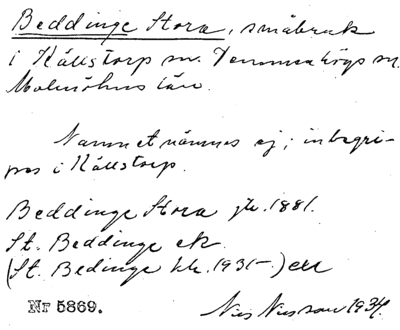 Beddinge Stora, småbruk
i Källstorp sn. Vemmenhögs hd.
Malmöhus län.
Namnet nämnes ej; inbegri-
pes i Källstorp.
Beddinge Stora jb. 1881.
St. Beddinge ek
(St. Bedinge hk. 1931-) ek
Nr 5869.
Nils Nilsson 1934.